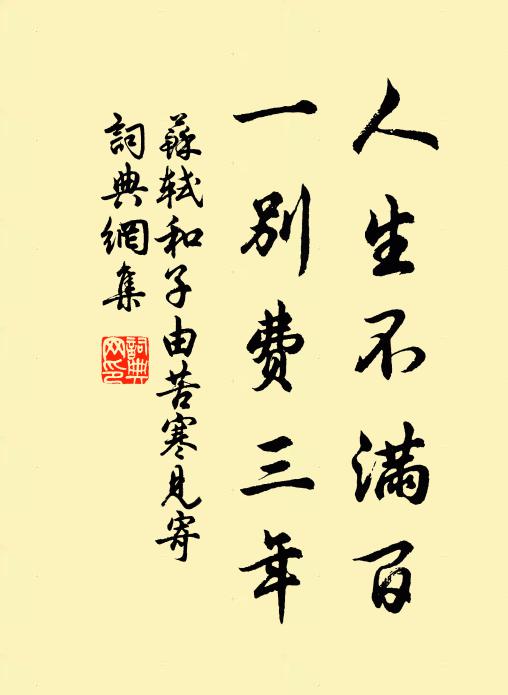 人生不滿百
一別費三年
蘇軾和子由苦寒見寄
詞典網集
詞典網印